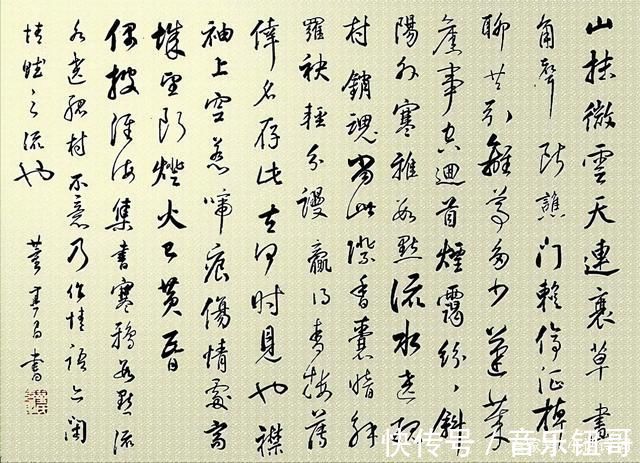 山抹微雲天連衰草畫
角聲斷譙門暫停征棹
聊共引離尊多少蓬萊
舊事空迴首煙靄紛〻斜
陽外寒鴉數點流水遶孤
村銷魂當此際香囊暗解
羅袂輕分謾贏得青樓薄
倖名存此去何時見也襟
袖上空惹啼痕傷情處高
城望斷燈火已黃昏
偶披淮海集書寒鴉數點流
水遶孤村不意乃作情語亦閑
情賦之流也
昌書
快传号 / 音乐钮哥